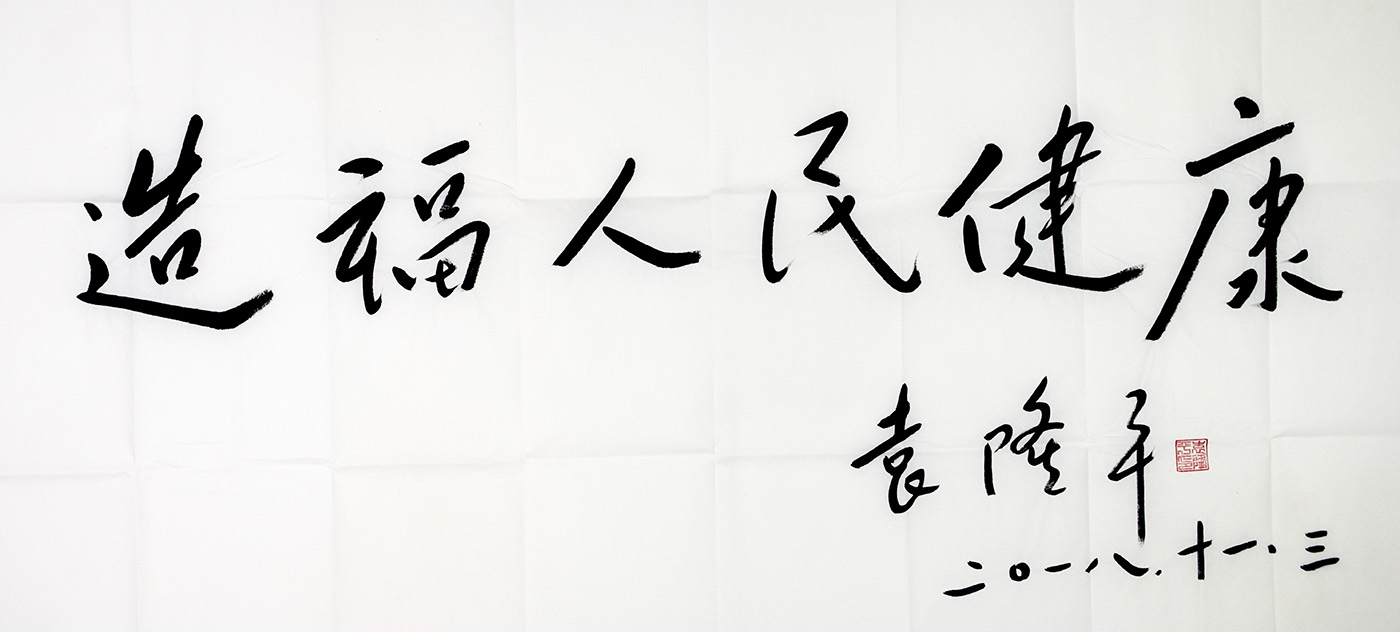 造福人民健康
袁隆平
二〇一八.十一.三